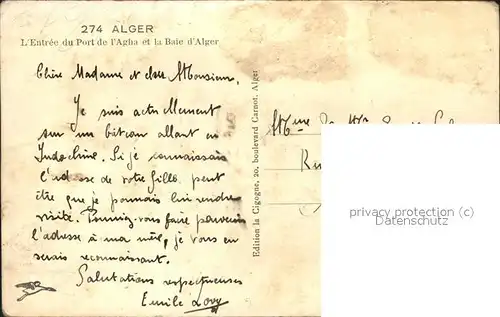 274 ALGER
L'Entrée du Port de l'Agha et la Baie d'Alger
Chère Madame et cher Monsieur,
Je suis actuellement
sur un bateau allant en
Indochine. Si je connaissais
l'adresse de votre fille, peut
être que je pourrais lui rendre
visite. Pourriez-vous faire parvenir
l'adresse à ma mère, je vous en
serais reconnaissant.
Salutations respectueuses
Emile Lovy
Edition la Cigogne, 20, boulevard Carnot, Alger
Mme
privacy protection (c)
Datenschutz